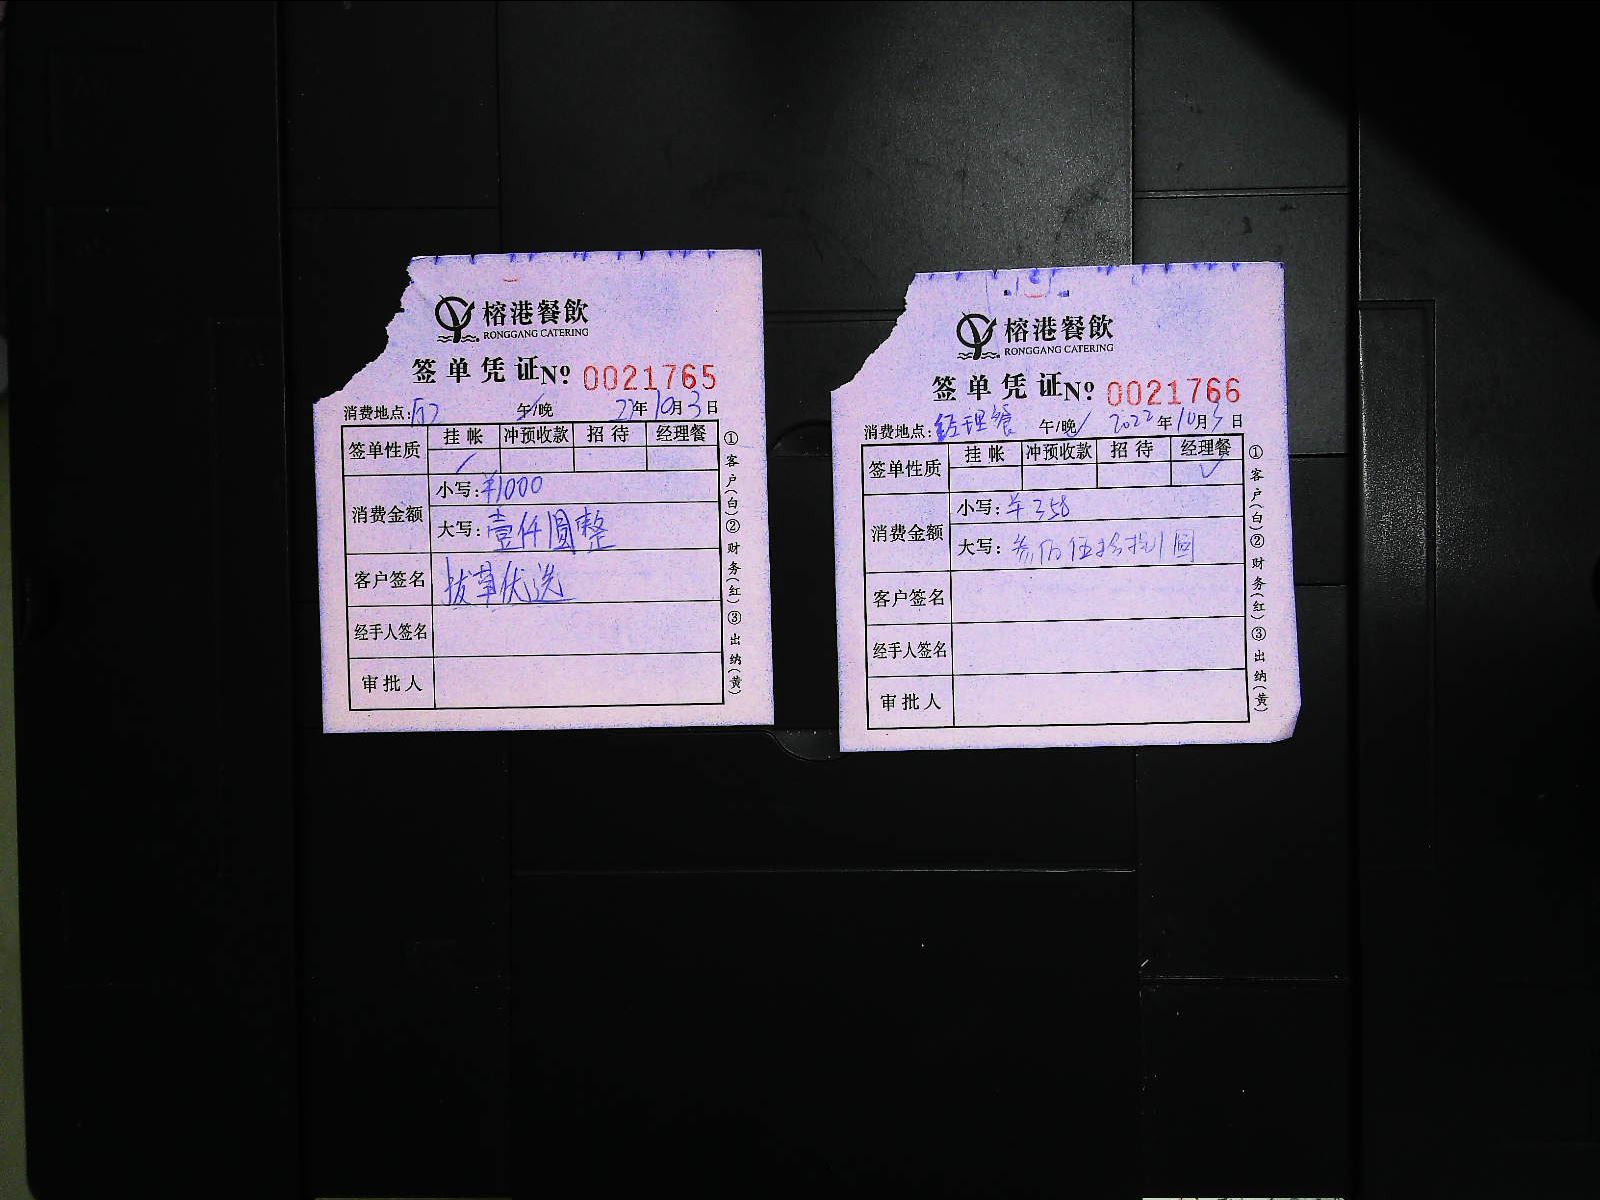 榕港餐飲
RONGGANG CATERING
签单凭证 Nº 0021765
消费地点: 午/晚 22年10月3日
签单性质 挂帐 冲预收款 招待 经理餐
✓
消费金额 小写:¥1000
大写:壹仟圆整
客户签名 拔草优选
经手人签名
审批人
①客户(白)②财务(红)③出纳(黄)
榕港餐飲
RONGGANG CATERING
签单凭证 Nº 0021766
消费地点:经理餐 午/晚✓ 2022年10月3日
签单性质 挂帐 冲预收款 招待 经理餐
✓
消费金额 小写:¥358
大写:叁佰伍拾捌圆
客户签名
经手人签名
审批人
①客户(白)②财务(红)③出纳(黄)